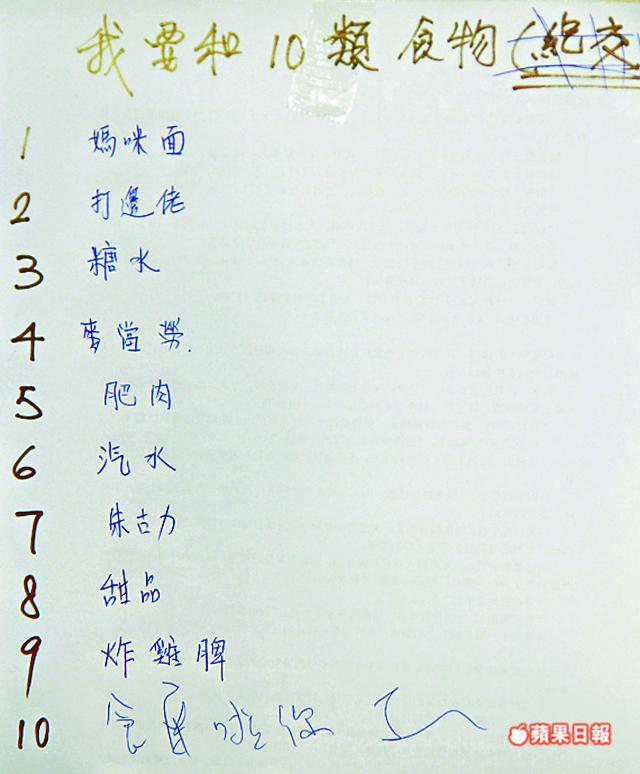 我要和10類食物(絕交
1 媽咪面
2 打邊佬
3 糖水
4 麥當勞.
5 肥肉
6 汽水
7 朱古力
8 甜品
9 炸雞脾
10 食
蘋果日報